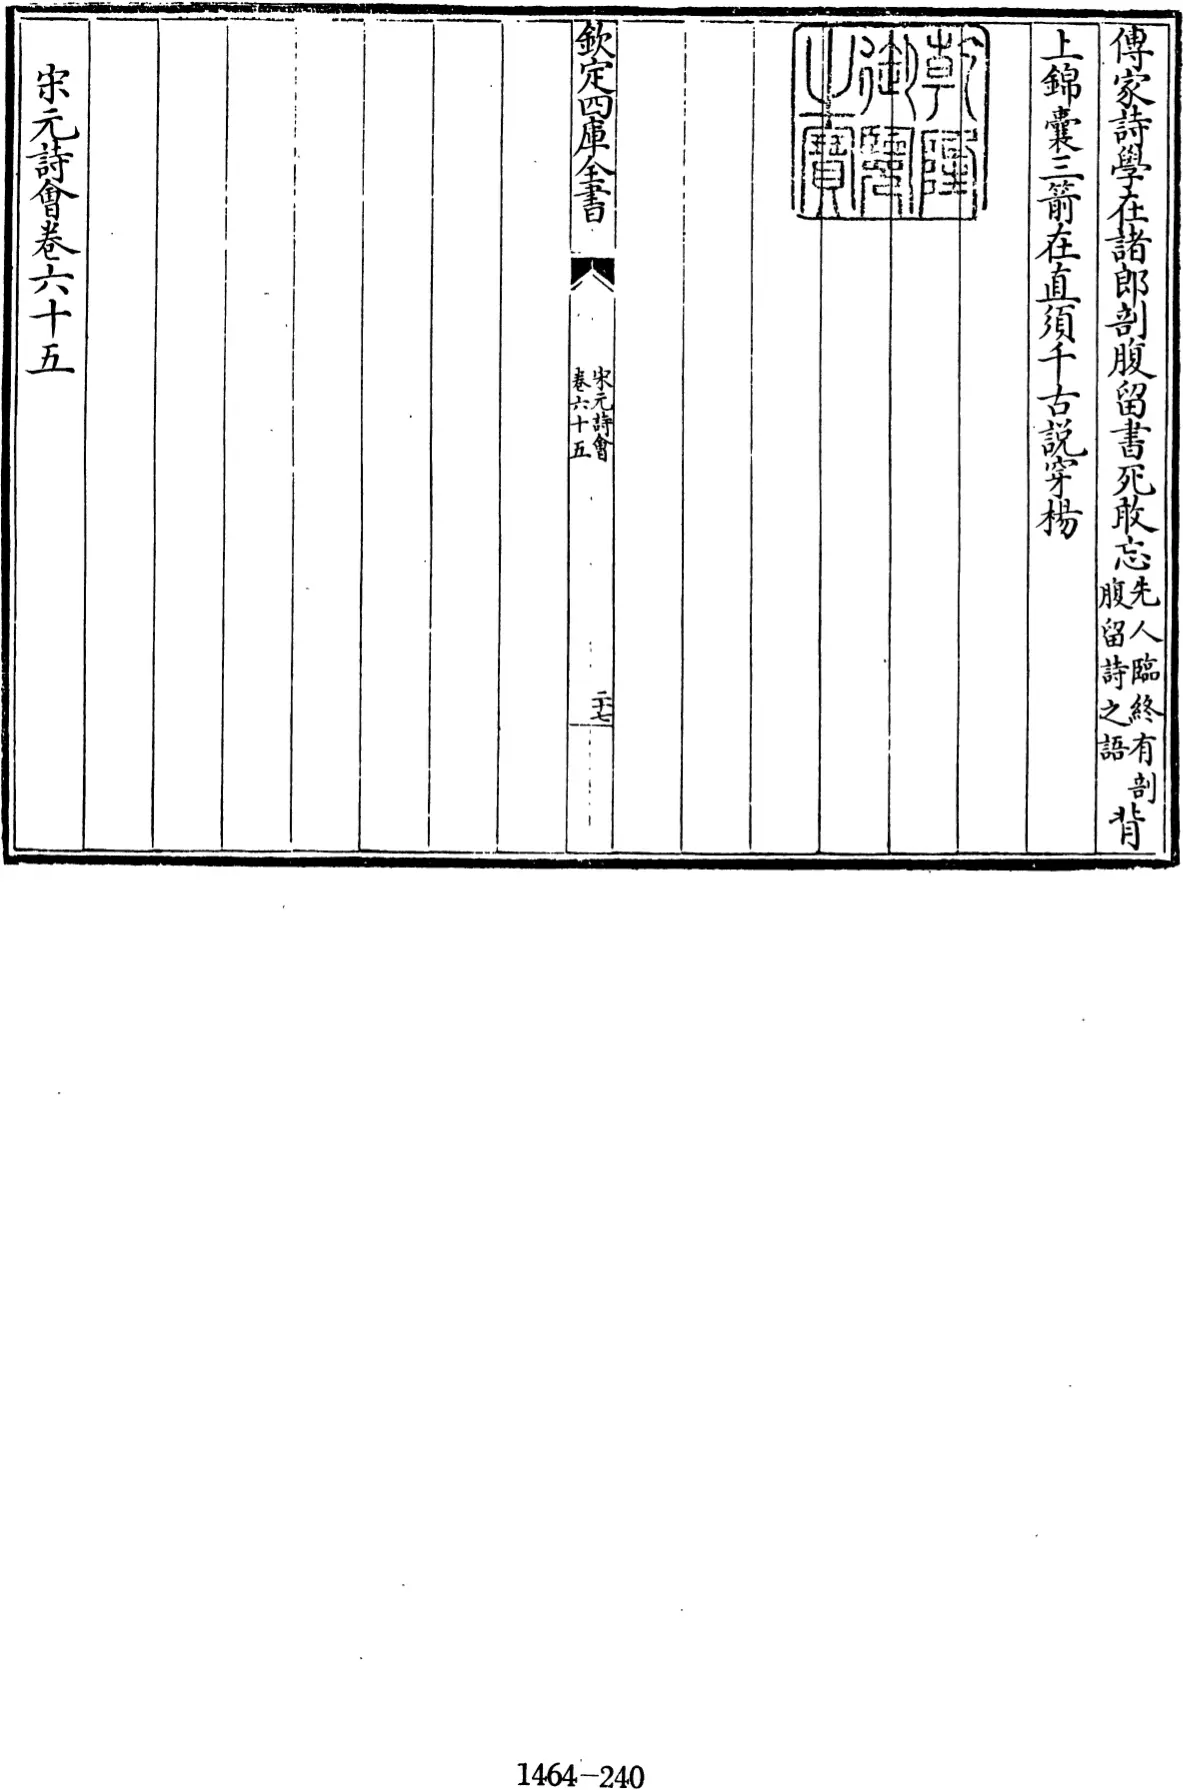 傳家詩學在諸郎剖腹留書死敢忘先人臨終有剖腹留詩之語背
上錦囊三箭在直須千古説穿楊
乾隆御覽之寶
欽定四庫全書
宋元詩會
卷六十五
二十七
宋元詩會卷六十五
1464-240